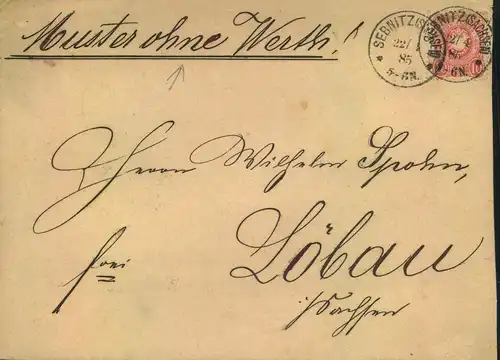 Muster ohne Werth!
SEBNITZ (SACHSEN)
22/
85
5-6N.
Herrn Wilhelm Spohn,
Löbau
frei
i/Sachsen